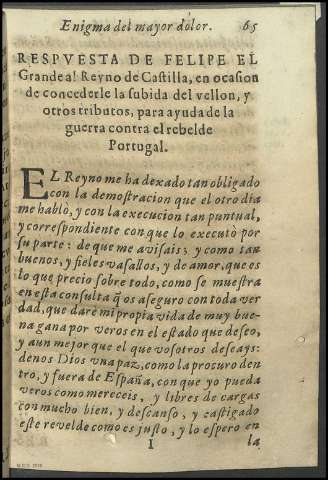 Enigma del mayor dolor. 65
RESPVESTA DE FELIPE EL
Grande al Reyno de Castilla, en ocasion
de concederle la subida del vellon, y
otros tributos, para ayuda de la
guerra contra el rebelde
Portugal.
EL Reyno me ha dexado tan obligado
con la demostracion que el otro dia
me hablò, y con la execucion tan puntual,
y correspondiente con que lo executò por
su parte: de que me avisais; y como tan
buenos, y fieles vasallos, y de amor, que es
lo que precio sobre todo, como se muestra
en esta consulta q̃ os aseguro con toda ver
dad, que darè mi propia vida de muy bue-
na gana por veros en el estado que deseo,
y aun mejor que el que vosotros deseays:
denos Dios vna paz, como la procuro den
tro, y fuera de España, con que yo pueda
veros como mereceis, y libres de cargas
con mucho bien, y descanso, y castigado
este revelde como es justo, y lo espero en
I la